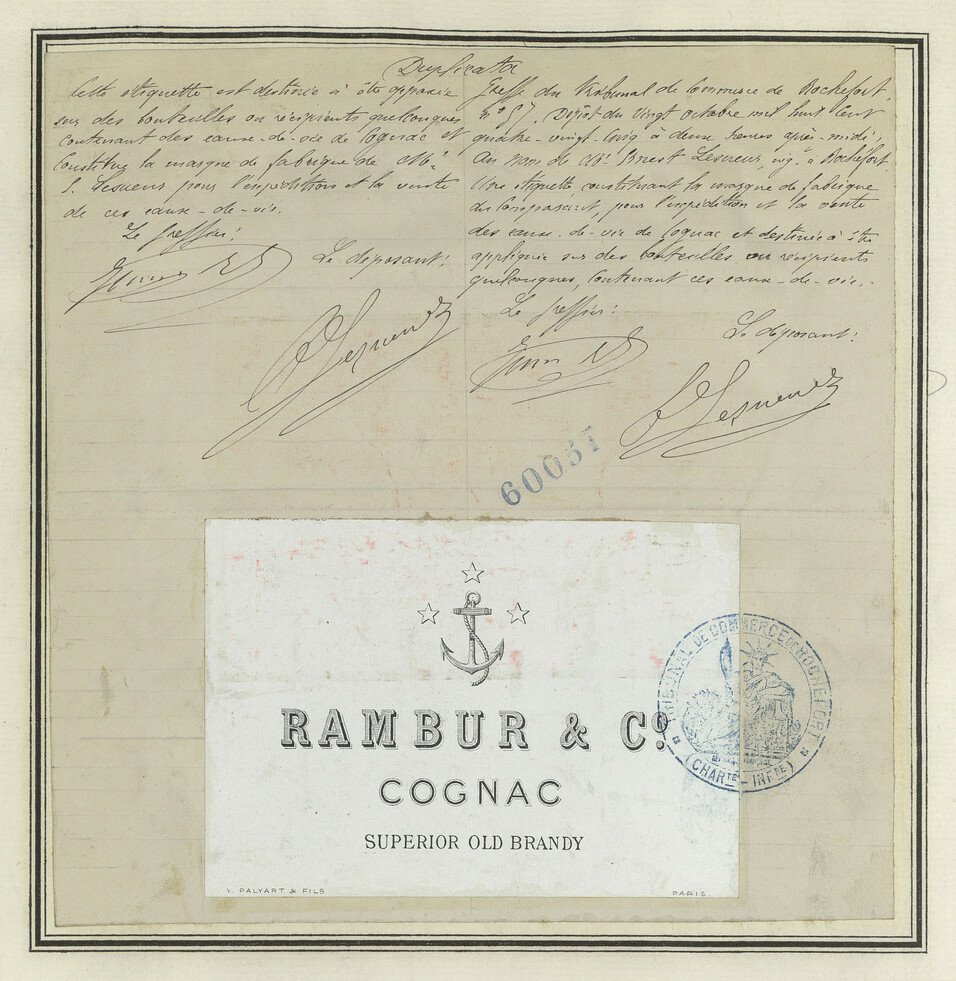 Duplicata
Cette étiquette est destinée à être apposée
sur des bouteilles ou récipients quelconques
contenant des eaux-de-vie de Cognac et
constitue la marque de fabrique de Mr
E. Lesueur pour l'expédition et la vente
de ces eaux-de-vie.
Le greffier:
Le déposant:
E Lesueur
Greffe du Tribunal de Commerce de Rochefort.
n° 57. Dépôt du vingt octobre mil huit cent
quatre-vingt-cinq à deux heures après-midi
au nom de Mr Ernest Lesueur, nég. à Rochefort.
Une étiquette constituant la marque de fabrique
du comparant, pour l'expédition et la vente
des eaux-de-vie de Cognac et destinée à être
appliquée sur des bouteilles ou récipients
quelconques, contenant ces eaux-de-vie.
Le greffier:
Le déposant:
E Lesueur
60037
RAMBUR & Co.
COGNAC
SUPERIOR OLD BRANDY
V. PALYART & FILS
PARIS.
TRIBUNAL DE COMMERCE DE ROCHEFORT
(CHARTE - INFRE)